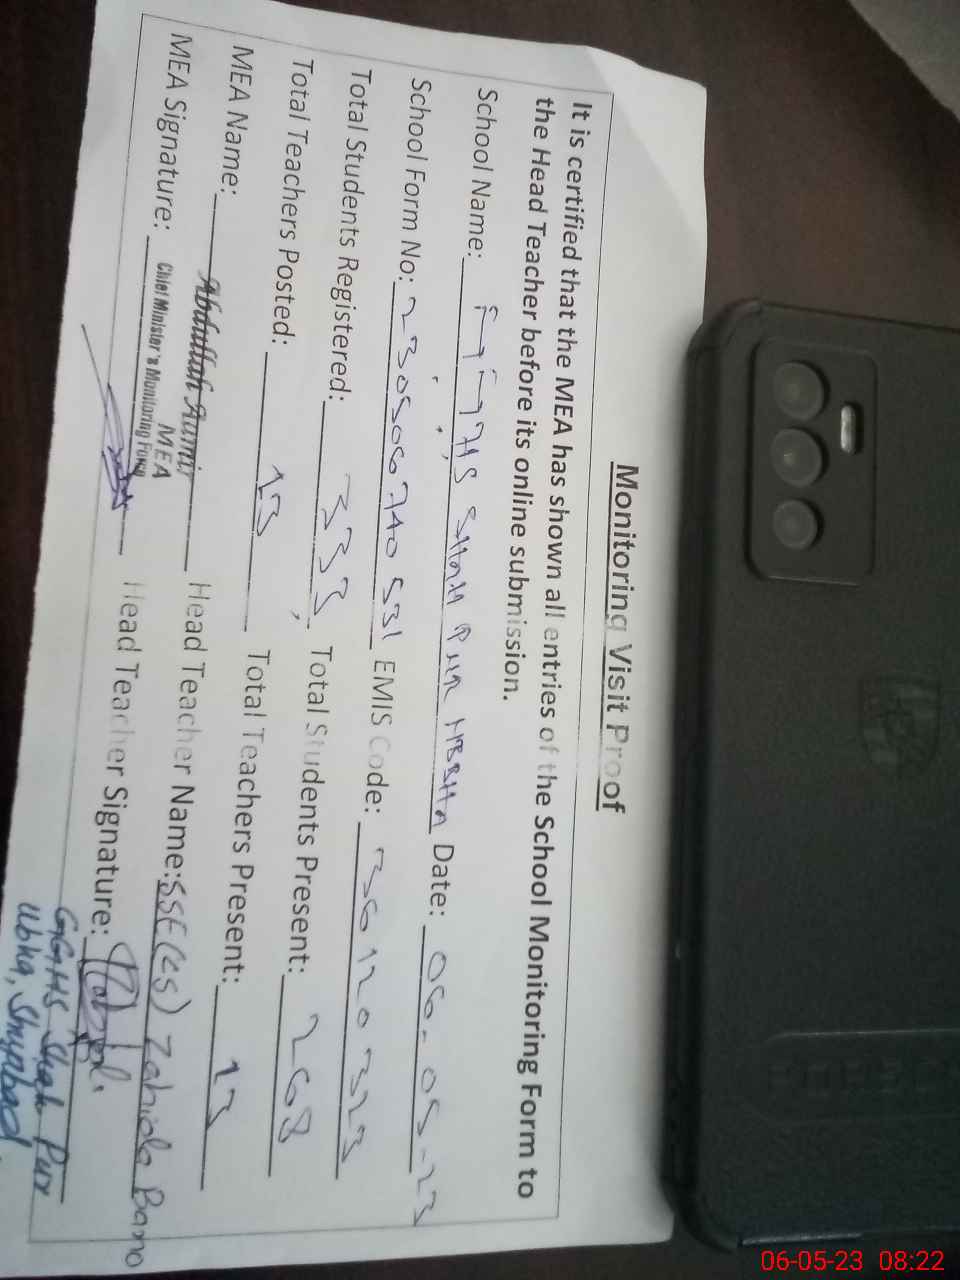 Monitoring Visit Proof
It is certified that the MEA has shown all entries of the School Monitoring Form to
the Head Teacher before its online submission.
School Name: GGHS SHAH PUR UBBHA Date: 06-05-23
School Form No: 230506740531 EMIS Code: 36120323
Total Students Registered: 333, Total Students Present: 268
Total Teachers Posted: 13 Total Teachers Present: 13
MEA Name: Abdullah Aamir Head Teacher Name: SSE(CS) Zahida Bano
MEA
Chief Minister's Monitoring Force
MEA Signature: Head Teacher Signature:
GGHS Shah Pur
Ubha, Shujabad.
06-05-23 08:22